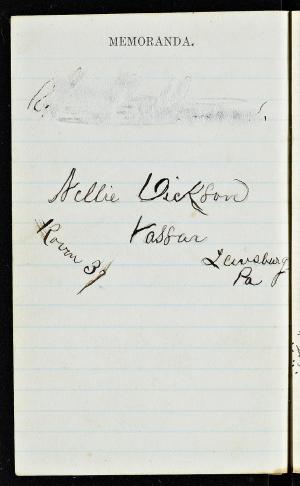 MEMORANDA.
Nellie Dickson
Vassar
Room 31
Lewisburg
Pa